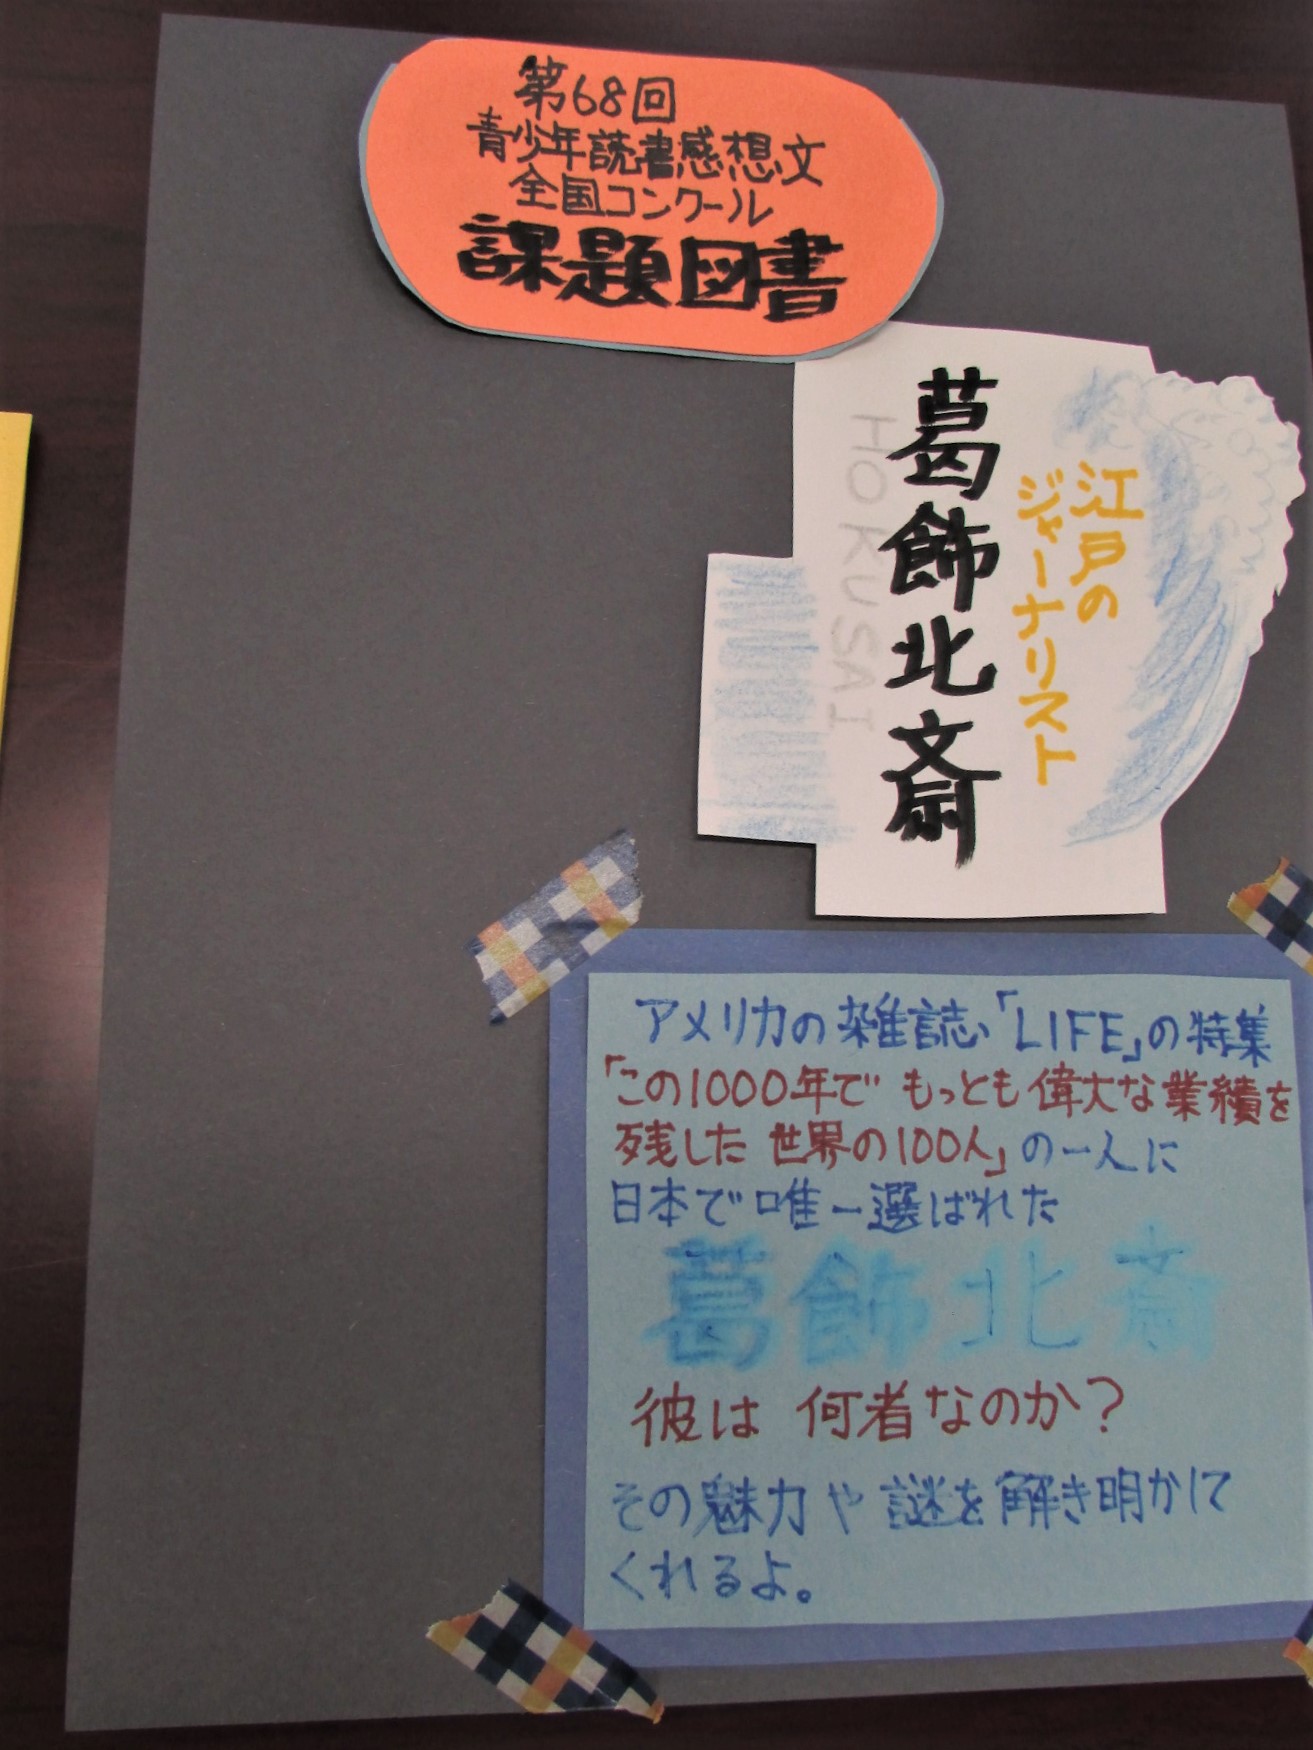 第68回
青少年読書感想文
全国コンクール
課題図書
江戸の
ジャーナリスト
葛飾北斎
HOKUSAI
アメリカの雑誌「LIFE」の特集
「この1000年で もっとも偉大な業績を
残した 世界の100人」の一人に
日本で唯一選ばれた
葛飾北斎
彼は 何者なのか?
その魅力や謎を解き明かして
くれるよ。